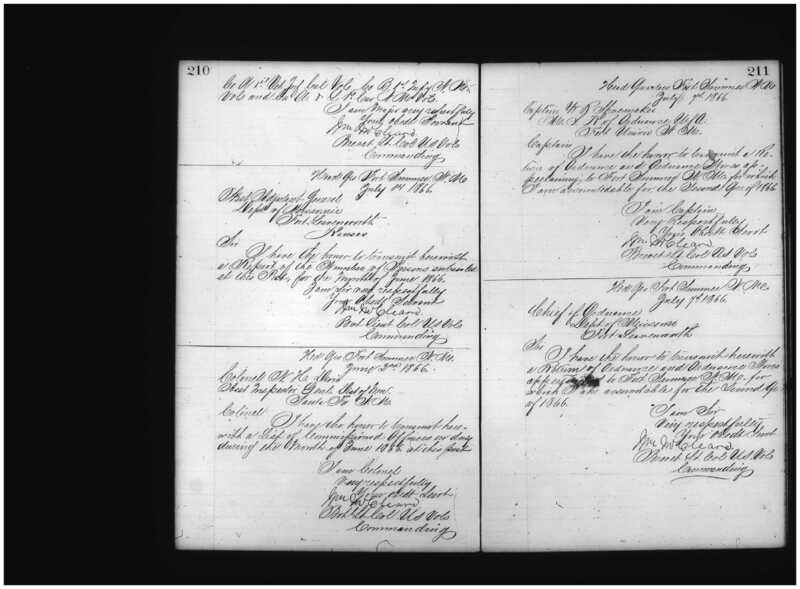 210
Co A 1st Vet Inf Cal Vols Co B 1st Infy N M
Vols and Co A & 1st Cav N M Vols.
I am Major very respectfully
Your obedt Servant
Wm McCleave
Brevet Lt Col U S Vols
Commanding
Head Qrs Fort Sumner N M
July 1866
Asst Adjutant General
Dept of Missouri
Fort Leavenworth
Kansas
Sir
I have the honor to transmit herewith
a Report of the Number of Persons
at this Post, for the Month of June 1866.
I am Sir very respectfully
Your Obedt Servant
Wm McCleave
Bvt Lieut Col U S Vols
Commanding
Hed Qrs Fort Sumner N Mo
June 1866.
Colonel N H Davis
Asst Inspector Genl Dist of N M
Santa Fe N M
Colonel
I have the honor to transmit here-
with a List of Commissioned Officers on duty
during the Month of June 1866 at this post
I am Colonel
Very respectfully
Your obdt Servt
Wm McCleave
Bvt Lt Col U S Vols
Commanding
211
Head Quarters Fort Sumner N Mo
July 7th 1866
Captain W R Shoemaker
M. S. K of Ordnance U S A.
Fort Union N M.
Captain
I have the honor to transmit a Re-
turn of Ordnance and Ordnance Stores ap-
pertaining to Fort Sumner N Mo for which
I am accountable for the Second Qr of 1866
I am Captain
Very Respectfully
Your Obdt Servt
Wm McCleave
Brevet Lt Col U S Vols
Commanding
Hed Qrs Fort Sumner N Mo
July 7th 1866.
Chief of Ordnance
Dept of Missouri
Fort Leavenworth
Sir
I have the honor to transmit herewith
a Return of Ordnance and Ordnance Stores
to Fort Sumner N Mo. for
which I am accountable for the Second Qr
of 1866.
I am Sir
Very respectfully
Your Obedt Servt
Wm McCleave
Brevet Lt Col U S Vols
Commanding